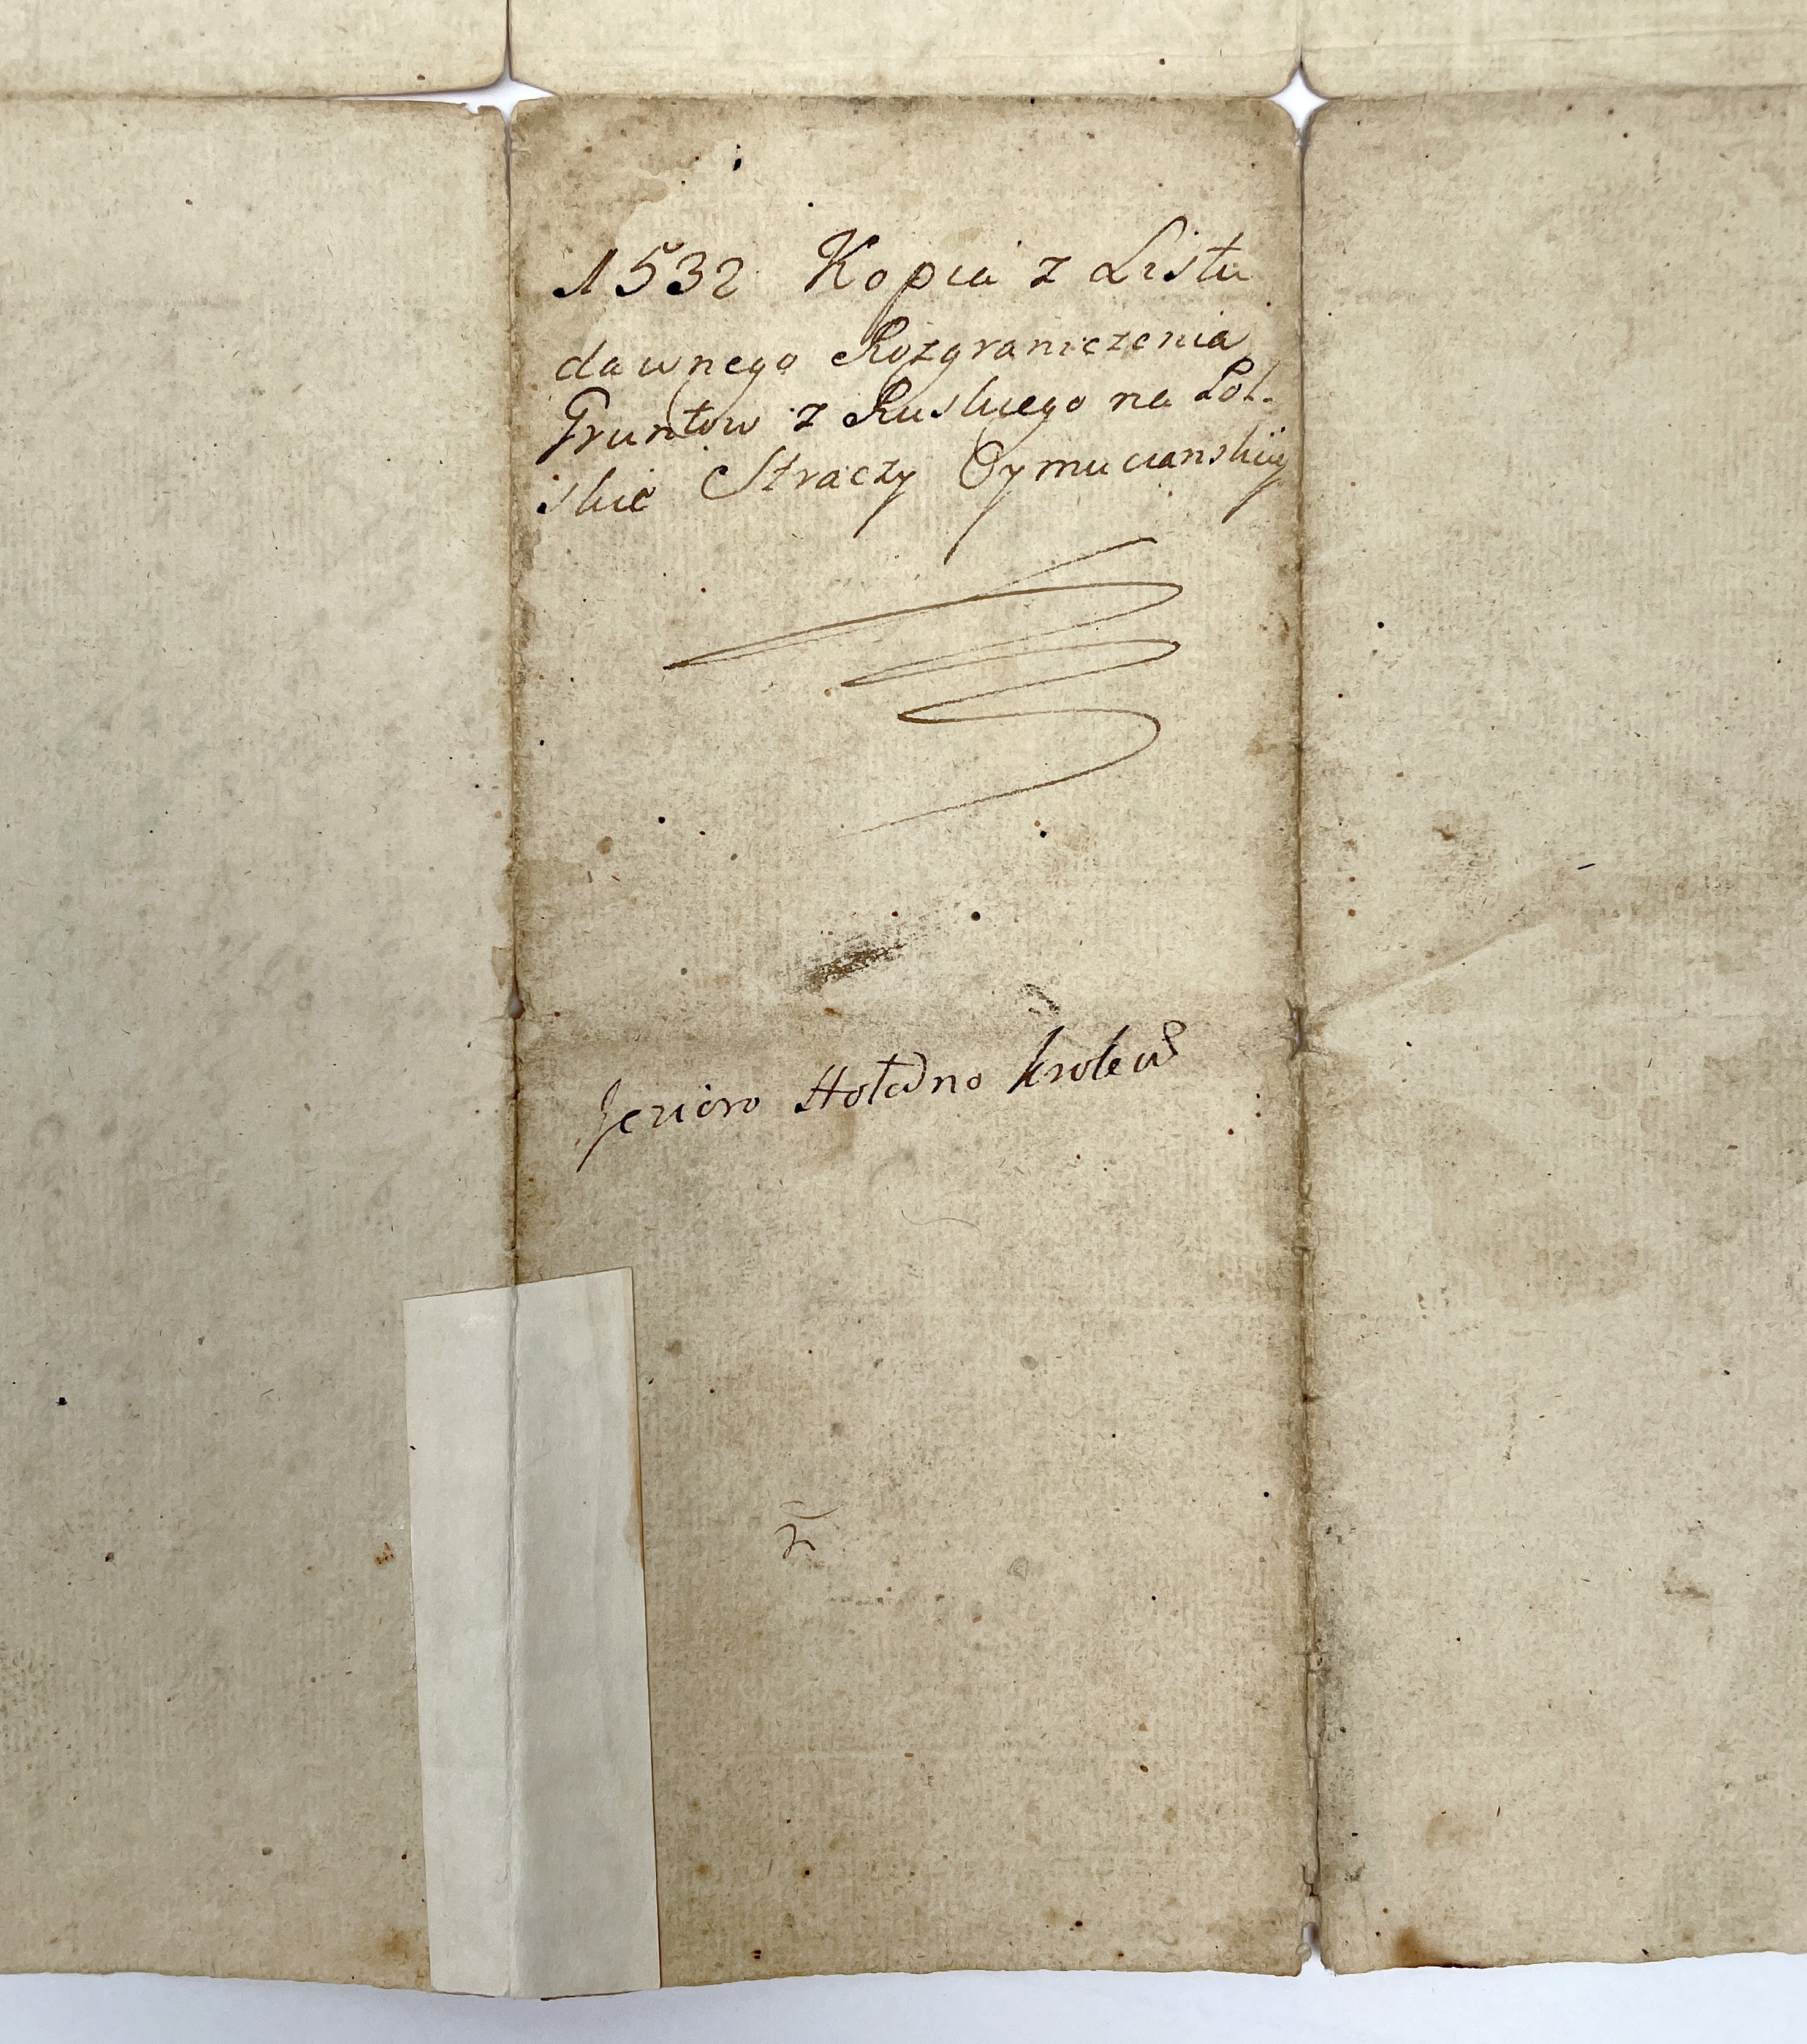 1532 Kopia z Listu
dawnego Rozgraniczenia
Gruntow z Ruskiego na Pol-
skie Straczy
Jezioro Hołodno krolew